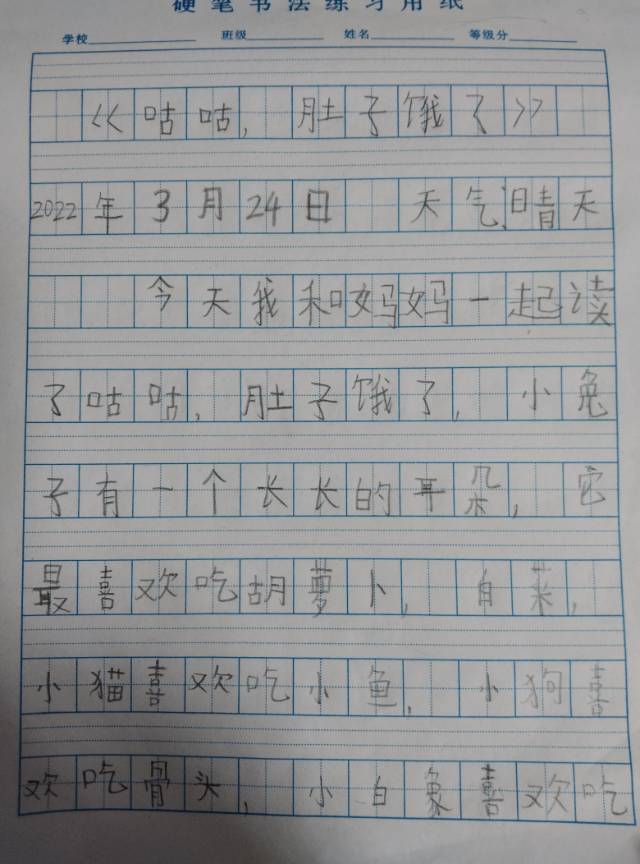 硬笔书法练习用纸
学校 班级 姓名 等级分
《咕咕,肚子饿了》
2022年3月24日 天气晴天
今天我和妈妈一起读
了咕咕,肚子饿了,小兔
子有一个长长的耳朵,它
最喜欢吃胡萝卜,自菜,
小猫喜欢吃小鱼,小狗喜
欢吃骨头,小白象喜欢吃